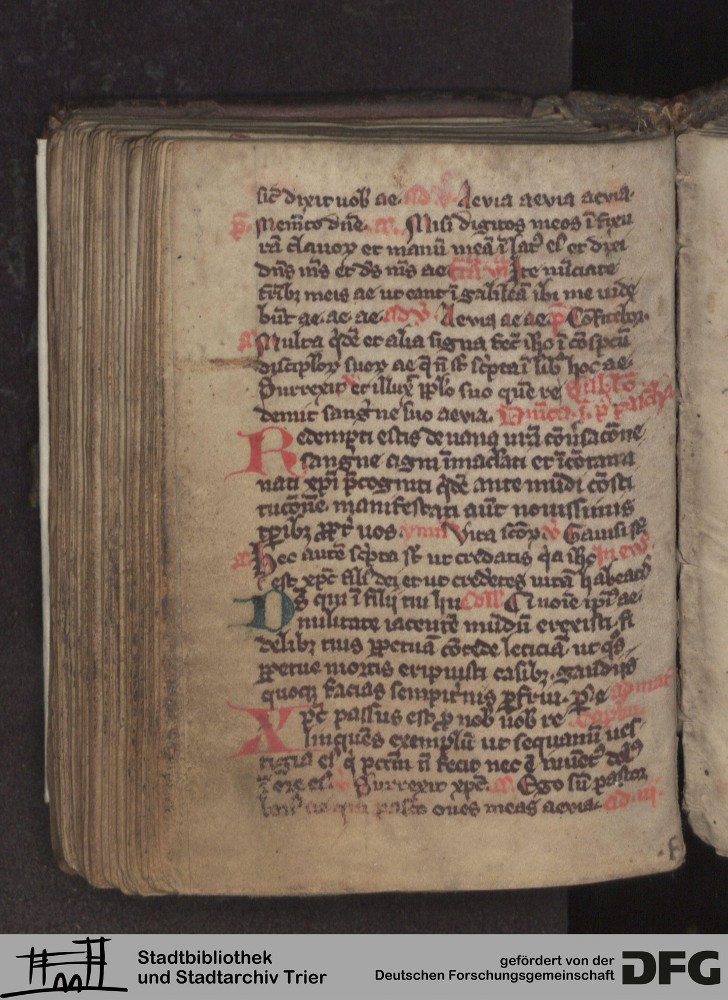 sic̄ dixit uob̄ ae. ad v̄. Aevia aevia aevia.
Mem̄to dn̄e. Nisi digitos meos ī fixu
rā clauoꝝ et manū meā ī latꝰ eiꝰ et dixi
dn̄s m̄s et ds̄ m̄s ae Ite nūciate
fr̄ibꝫ meis ae ut eant ī galileā ibi me uide
būt ae. ae. ae. ad v̄. Aevia ae ae.
Multa qͥdē et alia signa fec̄ ih̄c ī cōspcū
discipl̓oꝝ suoꝝ ae q̄ n̄ st̄ sc̄pta ī lib̄ hoc ae.
Surrexit et illux̄ pp̄lo suo quē re
demit sangͥne suo aevia.
Redempti estis de uana ur̄a cōūsacōne
sangͥne agni īmac̄lati et īcōtami
nati xp̄i p̄cogniti qͥdē ante mūdi cōsti
tucōne. manifestati aut̄ nouissimis
tp̄ribꝫ uos. Vita sc̄oꝝ v̄ Gauisi st̄
Hec autē sc̄pta st̄ ut credatis qͥa ih̄c In ew̄
est xp̄c fil̓s dei et ut credētes uitā habeatꝭ
Ds̄ qui ī filii tui hu Coll̄
militate iacentē mūdū erexisti fi
delibꝫ tuis ꝑpetuā cōcede leticiā. ut qͦs
ꝑpetue mortis eripuisti casibꝫ. gaudiis
quoqꝫ facias sempit̓nis ꝑfrui. P. e
Xp̄c passus est ꝓ nob̄ uob̄ re
linquēs exemplū ut sequamī ues
tigia eiꝰ qͥ pcc̄m n̄ fecit nec ē inuentꝰ dolꝰ
ī ore eiꝰ. v̄ Surrexit xp̄c. Ego sū pastor
oues meas aevia. ad
Stadtbibliothek
und Stadtarchiv Trier
gefördert von der
Deutschen Forschungsgemeinschaft
DFG